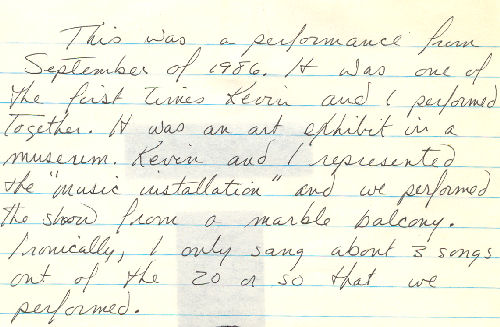 This was a performance from
September of 1986. It was one of
the first times Kevin and I performed
together. It was an art exhibit in a
museum. Kevin and I represented
the "music installation" and we performed
the show from a marble balcony.
Ironically, I only sang about 3 songs
out of the 20 or so that we
performed.